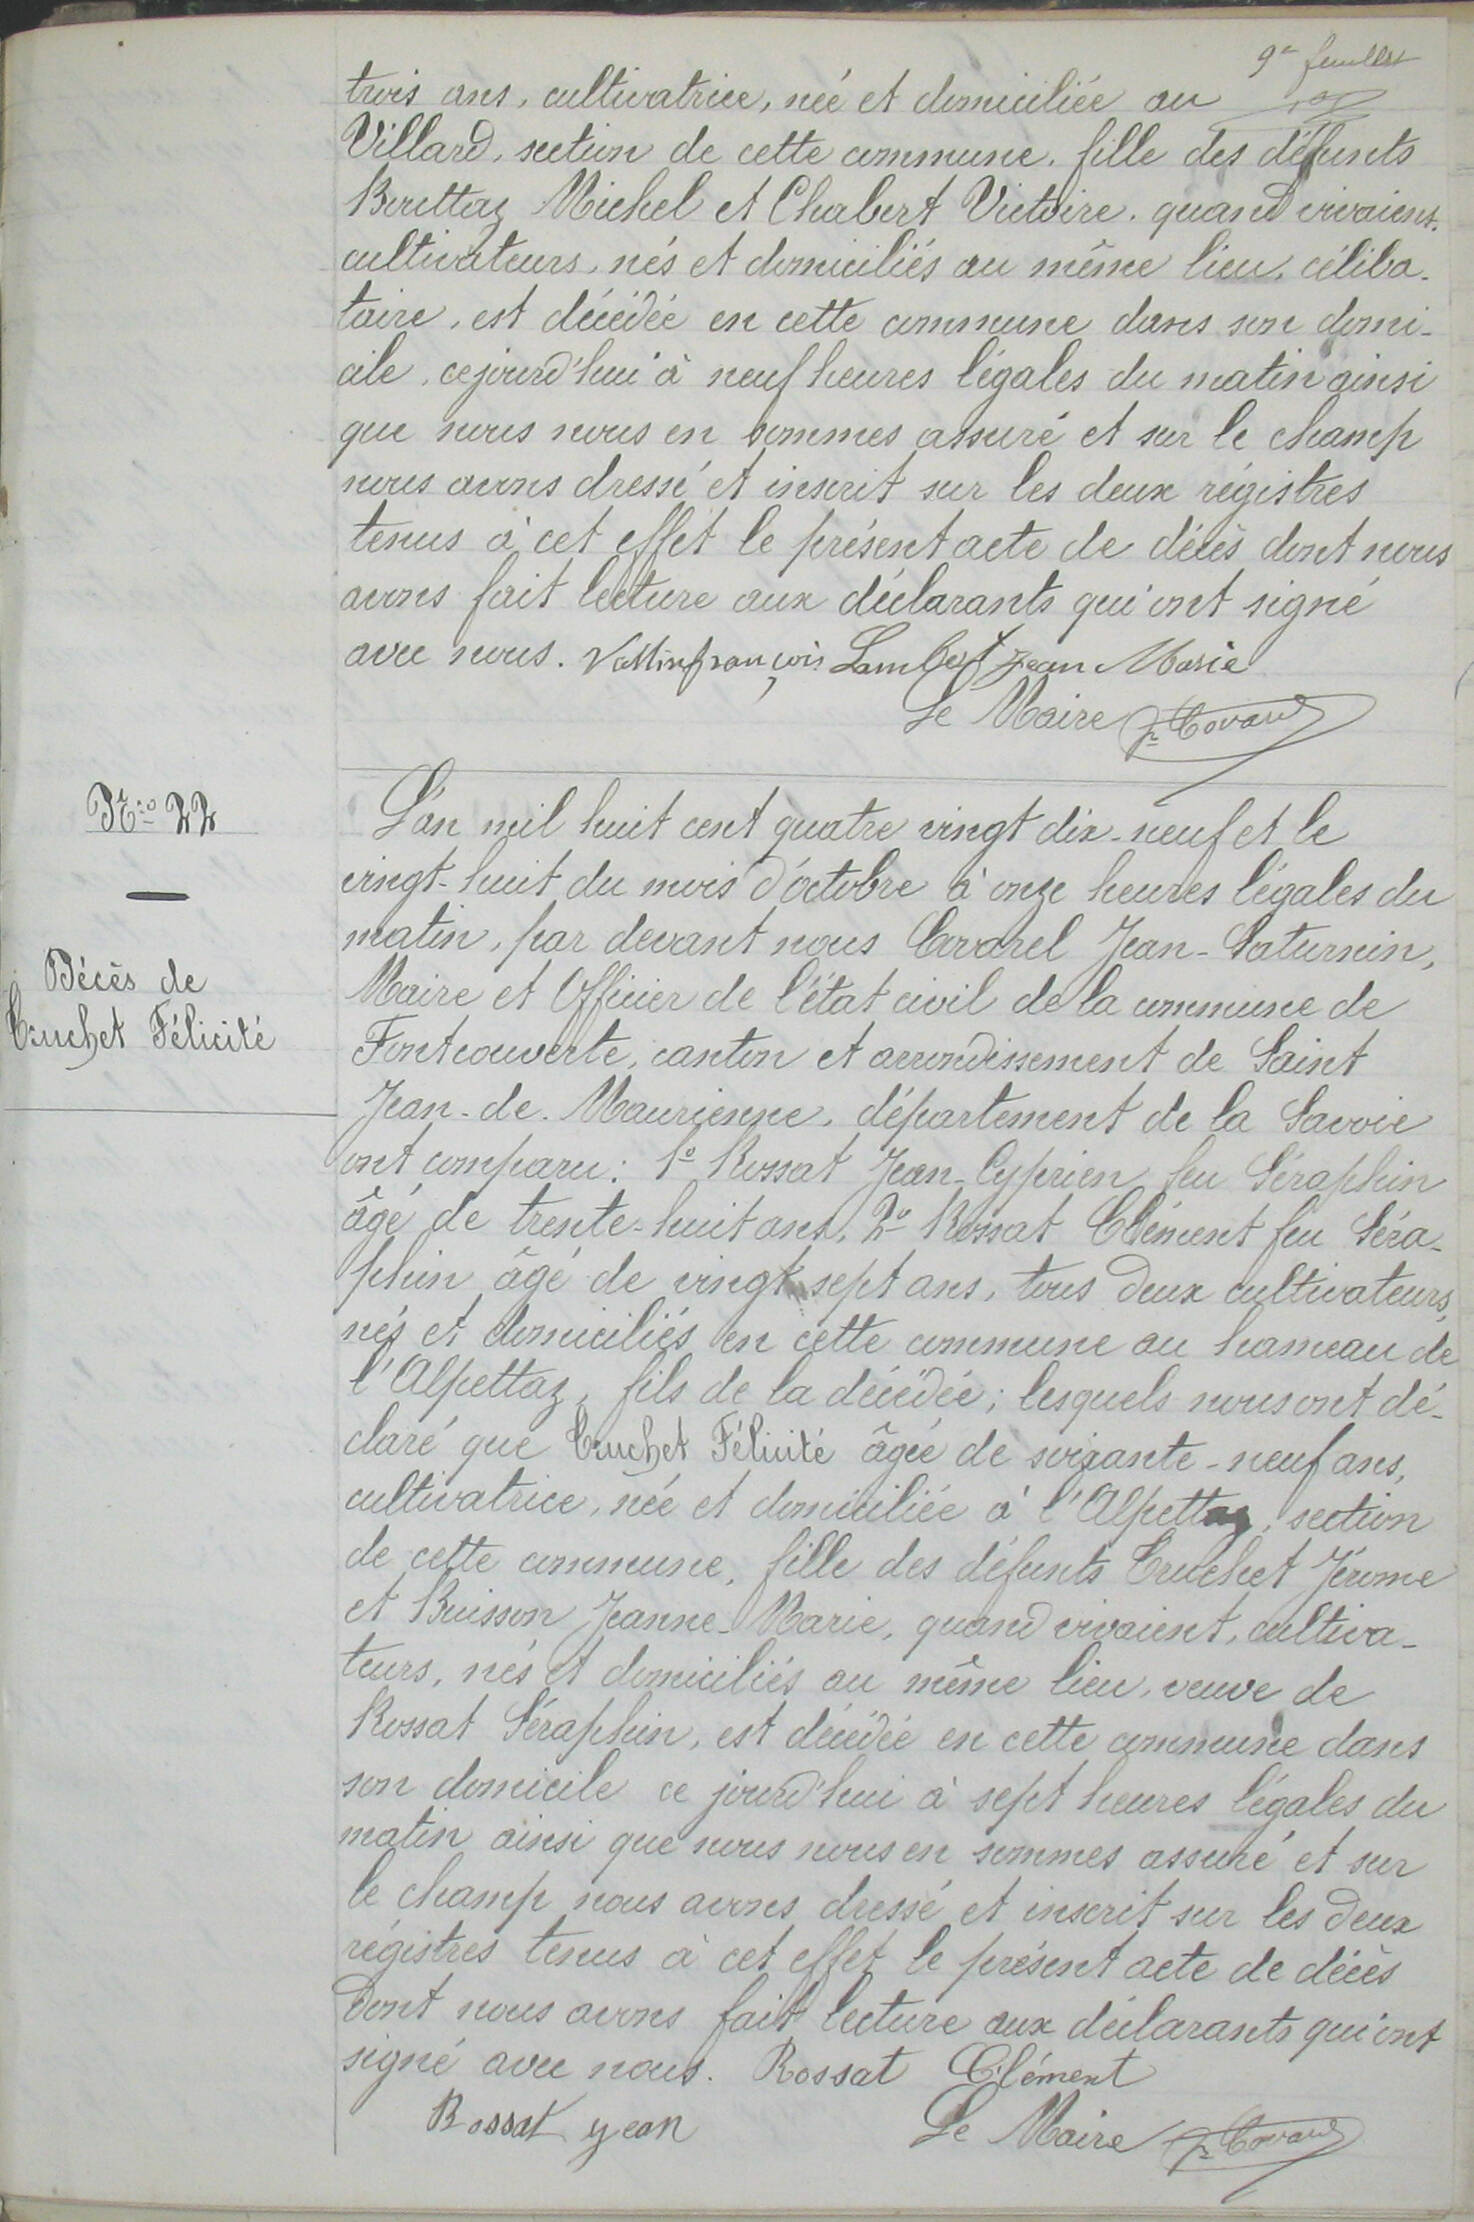 9e feuillet
trois ans, cultivatrice, née et domiciliée au
Villard, section de cette commune, fille des défunts
Bouttaz Michel et Chabert Victoire, quand vivaient,
cultivateurs, nés et domiciliés au même lieu, céliba-
taire, est décédée en cette commune dans son domi-
cile, cejourd'hui à neuf heures légales du matin ainsi
que nous nous en sommes assuré et sur le champ
nous avons dressé et inscrit sur les deux régistres
tenus à cet effet le présent acte de décès dont nous
avons fait lecture aux déclarants qui ont signé
avec nous. Vallin françois Lambert Jean Marie
Le Maire
No 22
Décès de
Cruchet Félicité
L'an mil huit cent quatre vingt dix-neuf et le
vingt-huit du mois d'octobre à onze heures légales du
matin, par devant nous Covarel Jean-Saturnin,
Maire et Officier de l'état civil de la commune de
Fontcouverte, canton et arrondissement de Saint
Jean-de-Maurienne, département de la Savoie
ont comparu: 1o Rossat Jean-Cyprien feu Séraphin
âgé de trente-huit ans, 2o Rossat Clément feu Séra-
phin âgé de vingt sept ans, tous deux cultivateurs,
nés et domiciliés en cette commune au hameau de
l'Alpettaz, fils de la décédée; lesquels nous ont dé-
claré que Cruchet Félicité âgée de soixante-neuf ans,
cultivatrice, née et domiciliée à l'Alpettaz, section
de cette commune, fille des défunts Cruchet Jérome
et Buisson Jeanne-Marie, quand vivaient, cultiva-
teurs, nés et domiciliés au même lieu, veuve de
Rossat Séraphin, est décédée en cette commune dans
son domicile ce jourd'hui à sept heures légales du
matin ainsi que nous nous en sommes assuré et sur
le champ nous avons dressé et inscrit sur les deux
régistres tenus à cet effet le présent acte de décès
dont nous avons fait lecture aux déclarants qui ont
signé avec nous. Rossat Clément
Rossat jean
Le Maire